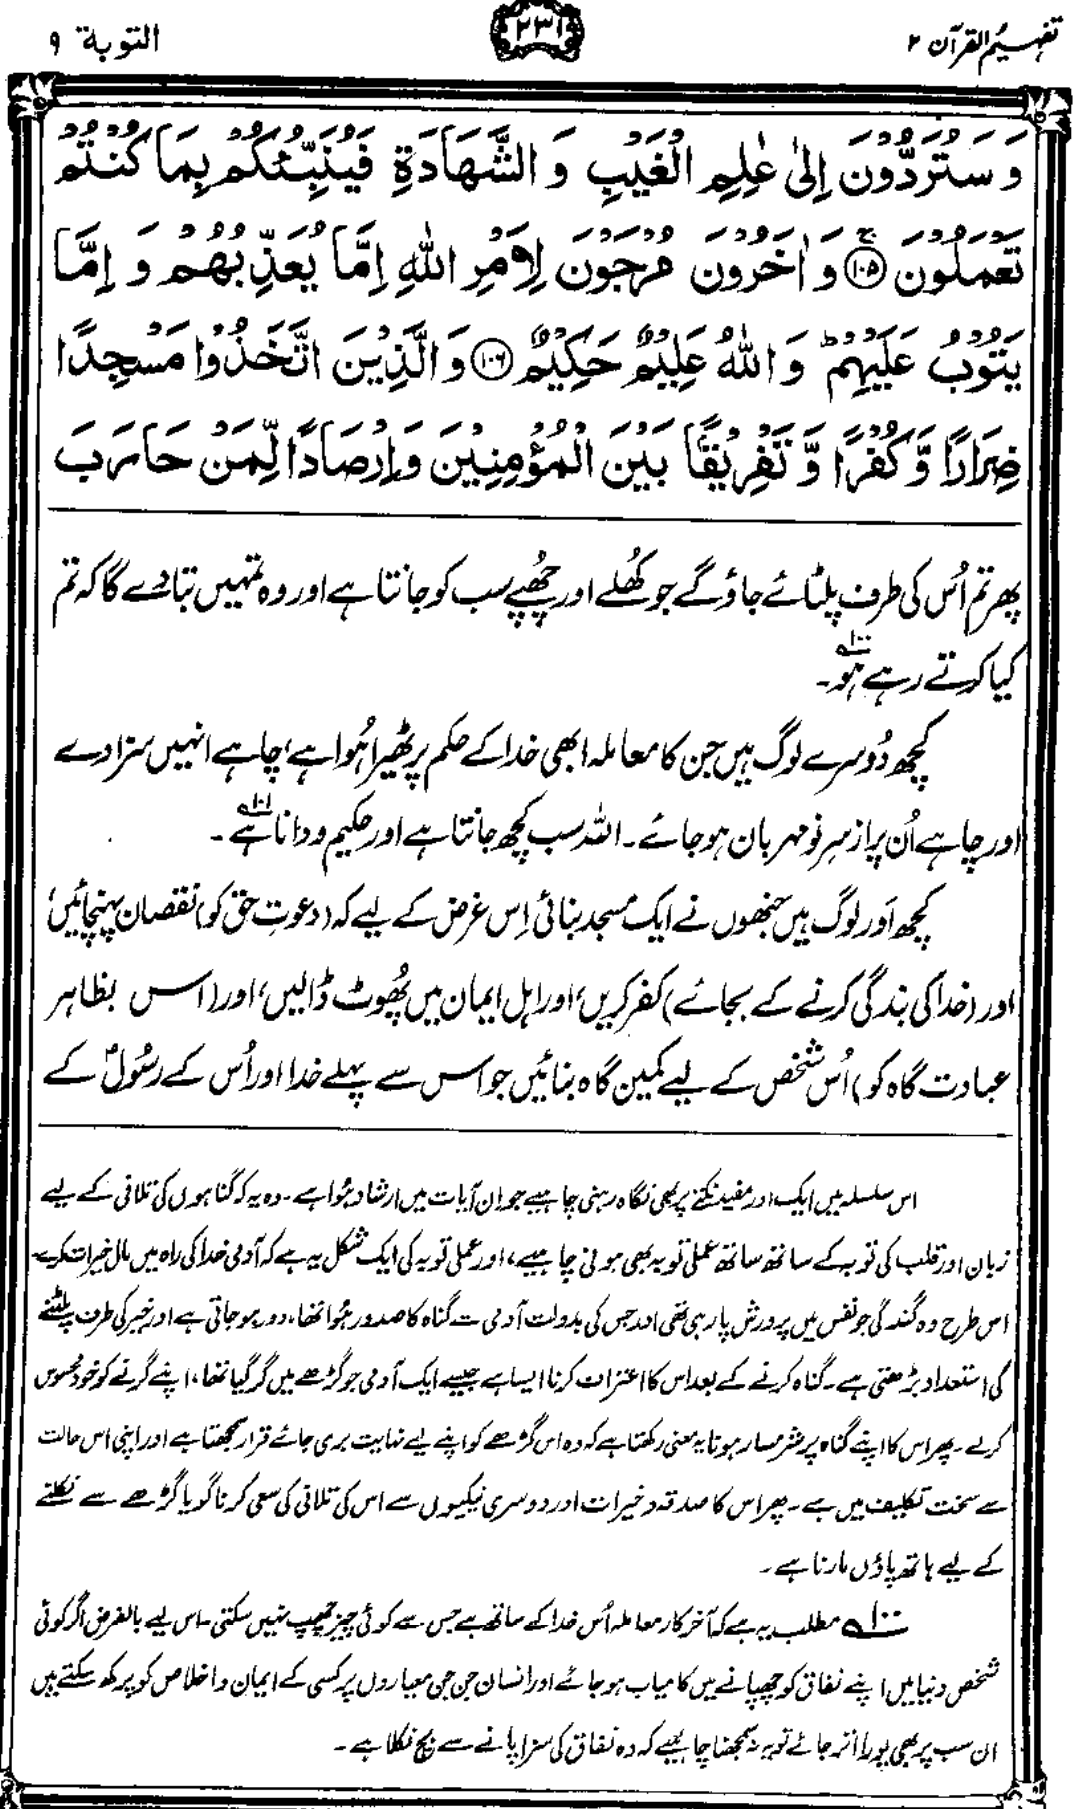 تفہیم القرآن ۲
۲۳۱
التوبة ۹
وَسَتُرَدُّوْنَ اِلٰى عٰلِمِ الْغَيْبِ وَالشَّهَادَةِ فَيُنَبِّئُكُمْ بِمَا كُنْتُمْ
تَعْمَلُوْنَ ۚ﴿۱۰۵﴾ وَاٰخَرُوْنَ مُرْجَوْنَ لِاَمْرِ اللّٰهِ اِمَّا يُعَذِّبُهُمْ وَاِمَّا
يَتُوْبُ عَلَيْهِمْ ؕ وَاللّٰهُ عَلِيْمٌ حَكِيْمٌ ﴿۱۰۶﴾ وَالَّذِيْنَ اتَّخَذُوْا مَسْجِدًا
ضِرَارًا وَّكُفْرًا وَّتَفْرِيْقًۢا بَيْنَ الْمُؤْمِنِيْنَ وَاِرْصَادًا لِّمَنْ حَارَبَ
پھر تم اُس کی طرف پلٹائے جاؤگے جو کُھلے اور چُھپے سب کو جانتا ہے اور وہ تمہیں بتا دے گا کہ تم
کیا کرتے رہے ہو۱۰۰۔
کچھ دُوسرے لوگ ہیں جن کا معاملہ ابھی خدا کے حکم پر ٹھیرا ہُوا ہے، چاہے انہیں سزا دے
اور چاہے اُن پر از سرِ نو مہربان ہوجائے۔ اللہ سب کچھ جانتا ہے اور حکیم و دانا ہے۱۰۱۔
کچھ اَور لوگ ہیں جنھوں نے ایک مسجد بنائی اِس غرض کے لیے کہ (دعوتِ حق کو) نقصان پہنچائیں،
اور (خدا کی بندگی کرنے کے بجائے) کفر کریں، اور اہلِ ایمان میں پُھوٹ ڈالیں، اور (اس بظاہر
عبادت گاہ کو) اُس شخص کے لیے کمین گاہ بنائیں جو اس سے پہلے خدا اور اُس کے رسُولؐ کے
اس سلسلہ میں ایک اور مفید نکتے پر بھی نگاہ رہنی چاہیے جو ان آیات میں ارشاد ہُوا ہے۔ وہ یہ کہ گناہوں کی تلافی کے لیے
زبان اور قلب کی توبہ کے ساتھ ساتھ عملی توبہ بھی ہونی چاہیے، اور عملی توبہ کی ایک شکل یہ ہے کہ آدمی خدا کی راہ میں مال خیرات کرے۔
اس طرح وہ گندگی جو نفس میں پرورش پا رہی تھی اور جس کی بدولت آدمی سے گناہ کا صدور ہُوا تھا، دور ہوجاتی ہے اور خیر کی طرف پلٹنے
کی استعداد بڑھتی ہے۔ گناہ کرنے کے بعد اس کا اعتراف کرنا ایسا ہے جیسے ایک آدمی جو گڑھے میں گر گیا تھا، اپنے گرنے کو خود محسوس
کرلے۔ پھر اس کا اپنے گناہ پر شرمسار ہونا یہ معنی رکھتا ہے کہ وہ اس گڑھے کو اپنے لیے نہایت بری جائے قرار سمجھتا ہے اور اپنی اس حالت
سے سخت تکلیف میں ہے۔ پھر اس کا صدقہ و خیرات اور دوسری نیکیوں سے اس کی تلافی کی سعی کرنا گویا گڑھے سے نکلنے
کے لیے ہاتھ پاؤں مارنا ہے۔
۱۰۰ مطلب یہ ہے کہ آخرکار معاملہ اُس خدا کے ساتھ ہے جس سے کوئی چیز چھپ نہیں سکتی۔ اس لیے بالفرض اگر کوئی
شخص دنیا میں اپنے نفاق کو چھپانے میں کامیاب ہوجائے اور انسان جن جن معیاروں پر کسی کے ایمان و اخلاص کو پرکھ سکتے ہیں
ان سب پر بھی پورا اتر جائے تو یہ نہ سمجھنا چاہیے کہ وہ نفاق کی سزا پانے سے بچ نکلا ہے۔